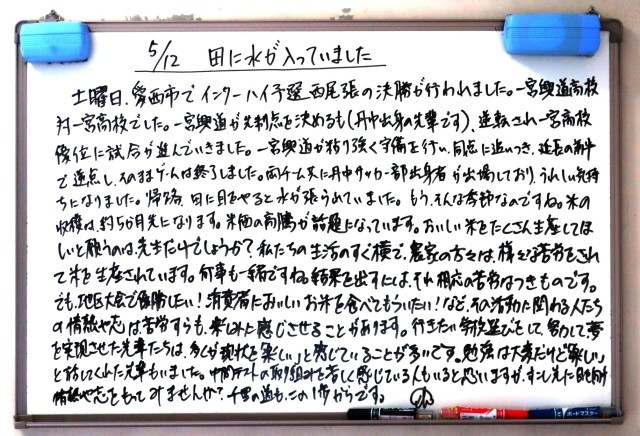 5/12 田に水が入っていました
土曜日、愛西市でインターハイ予選 西尾張の決勝が行われました。一宮興道高校
対一宮高校でした。一宮興道が先制点を決めるも(丹中出身の先輩です)、逆転され一宮高校
優位に試合が進んでいきました。一宮興道が粘り強く守備を行い、同点に追いつき、延長の前半
で逆点し、そのままゲームは終了しました。両チームに丹中サッカー部出身者が出場しており、うれしい気持
ちになりました。帰路、田に目をやると水が張られていました。もう、そんな季節なのですね。米の
収穫は、約5か月先になります。米価の高騰が話題になっています。おいしい米をたくさん生産してほ
しいと願うのは、先生だけでしょうか?私たちの生活のすぐ横で、農家の方々は、様々な苦労をされ
て米を生産されています。何事も一緒ですね。結果を出すには、それ相応の苦労はつきものです。
でも、地区大会で優勝したい!消費者においしいお米を食べてもらいたい!など、その活動に関わる人たち
の情熱や志は苦労すらも、楽しみに感じさせることがあります。行きたい学校選びをして、努力して夢
を実現させた先輩たちは、多くが現状を「楽しい」と感じていることが多いです。勉強は大変だけど「楽しい」
と話してくれた先輩もいました。中間テストの取り組みを苦しく感じている人もいると思いますが、すこし先に目を向け
情熱や志をもってみませんか?千里の道も、この1歩からです。
ボードマスター